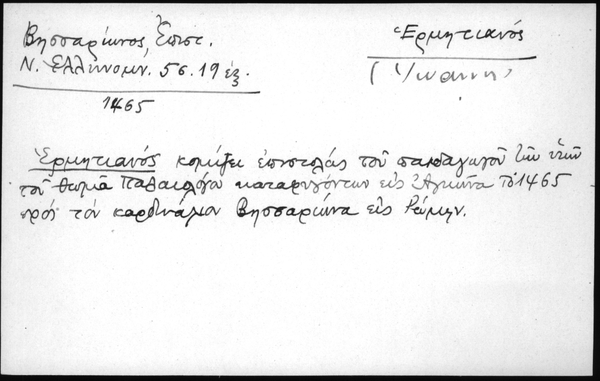 Βησσαρίωνος, Ἐπιστ.
Ν. Ἑλληνομν. 56. 19 ἑξ.
1465
Ἑρμητιανός
(Ἰωάννη)
Ἑρμητιανός κομίζει ἐπιστολάς τοῦ παιδαγωγοῦ τῶν υἱῶν
τοῦ Θωμᾶ Παλαιολόγου καταφυγόντων εἰς Ἀγκῶνα τῷ 1465
πρός τόν καρδινάλιον Βησσαρίωνα εἰς Ῥώμην.